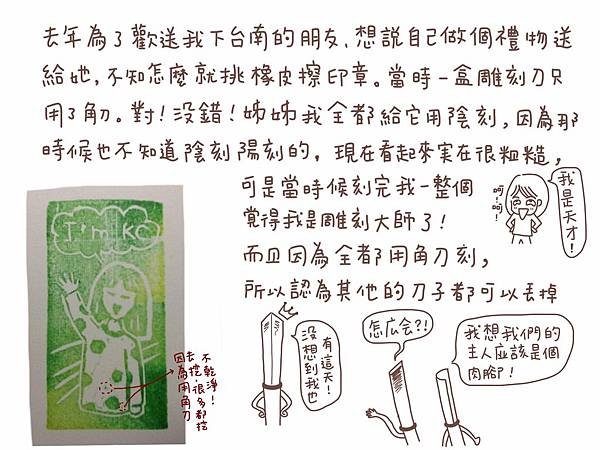 去年為了歡送我下台南的朋友、想說自己做個禮物送
給她,不知怎麼就挑橡皮擦印章。當時一盒雕刻刀只
用3角刀。對!沒錯!姊姊我全都給它用陰刻,因為那
時候也不知道陰刻陽刻的,現在看起來实在很粗糙,
可是當時候刻完我一整個
覺得我是雕刻大師了!
而且因為全都用角刀刻,
所以認為其他的刀子都可以丟掉
呵!呵!
我是天才!
I'm KC
因為用角刀
去挖,很多都挖
不乾淨!
沒想到我也
有這天!
怎么会?!
我想我們的
主人应該是個
肉腳!